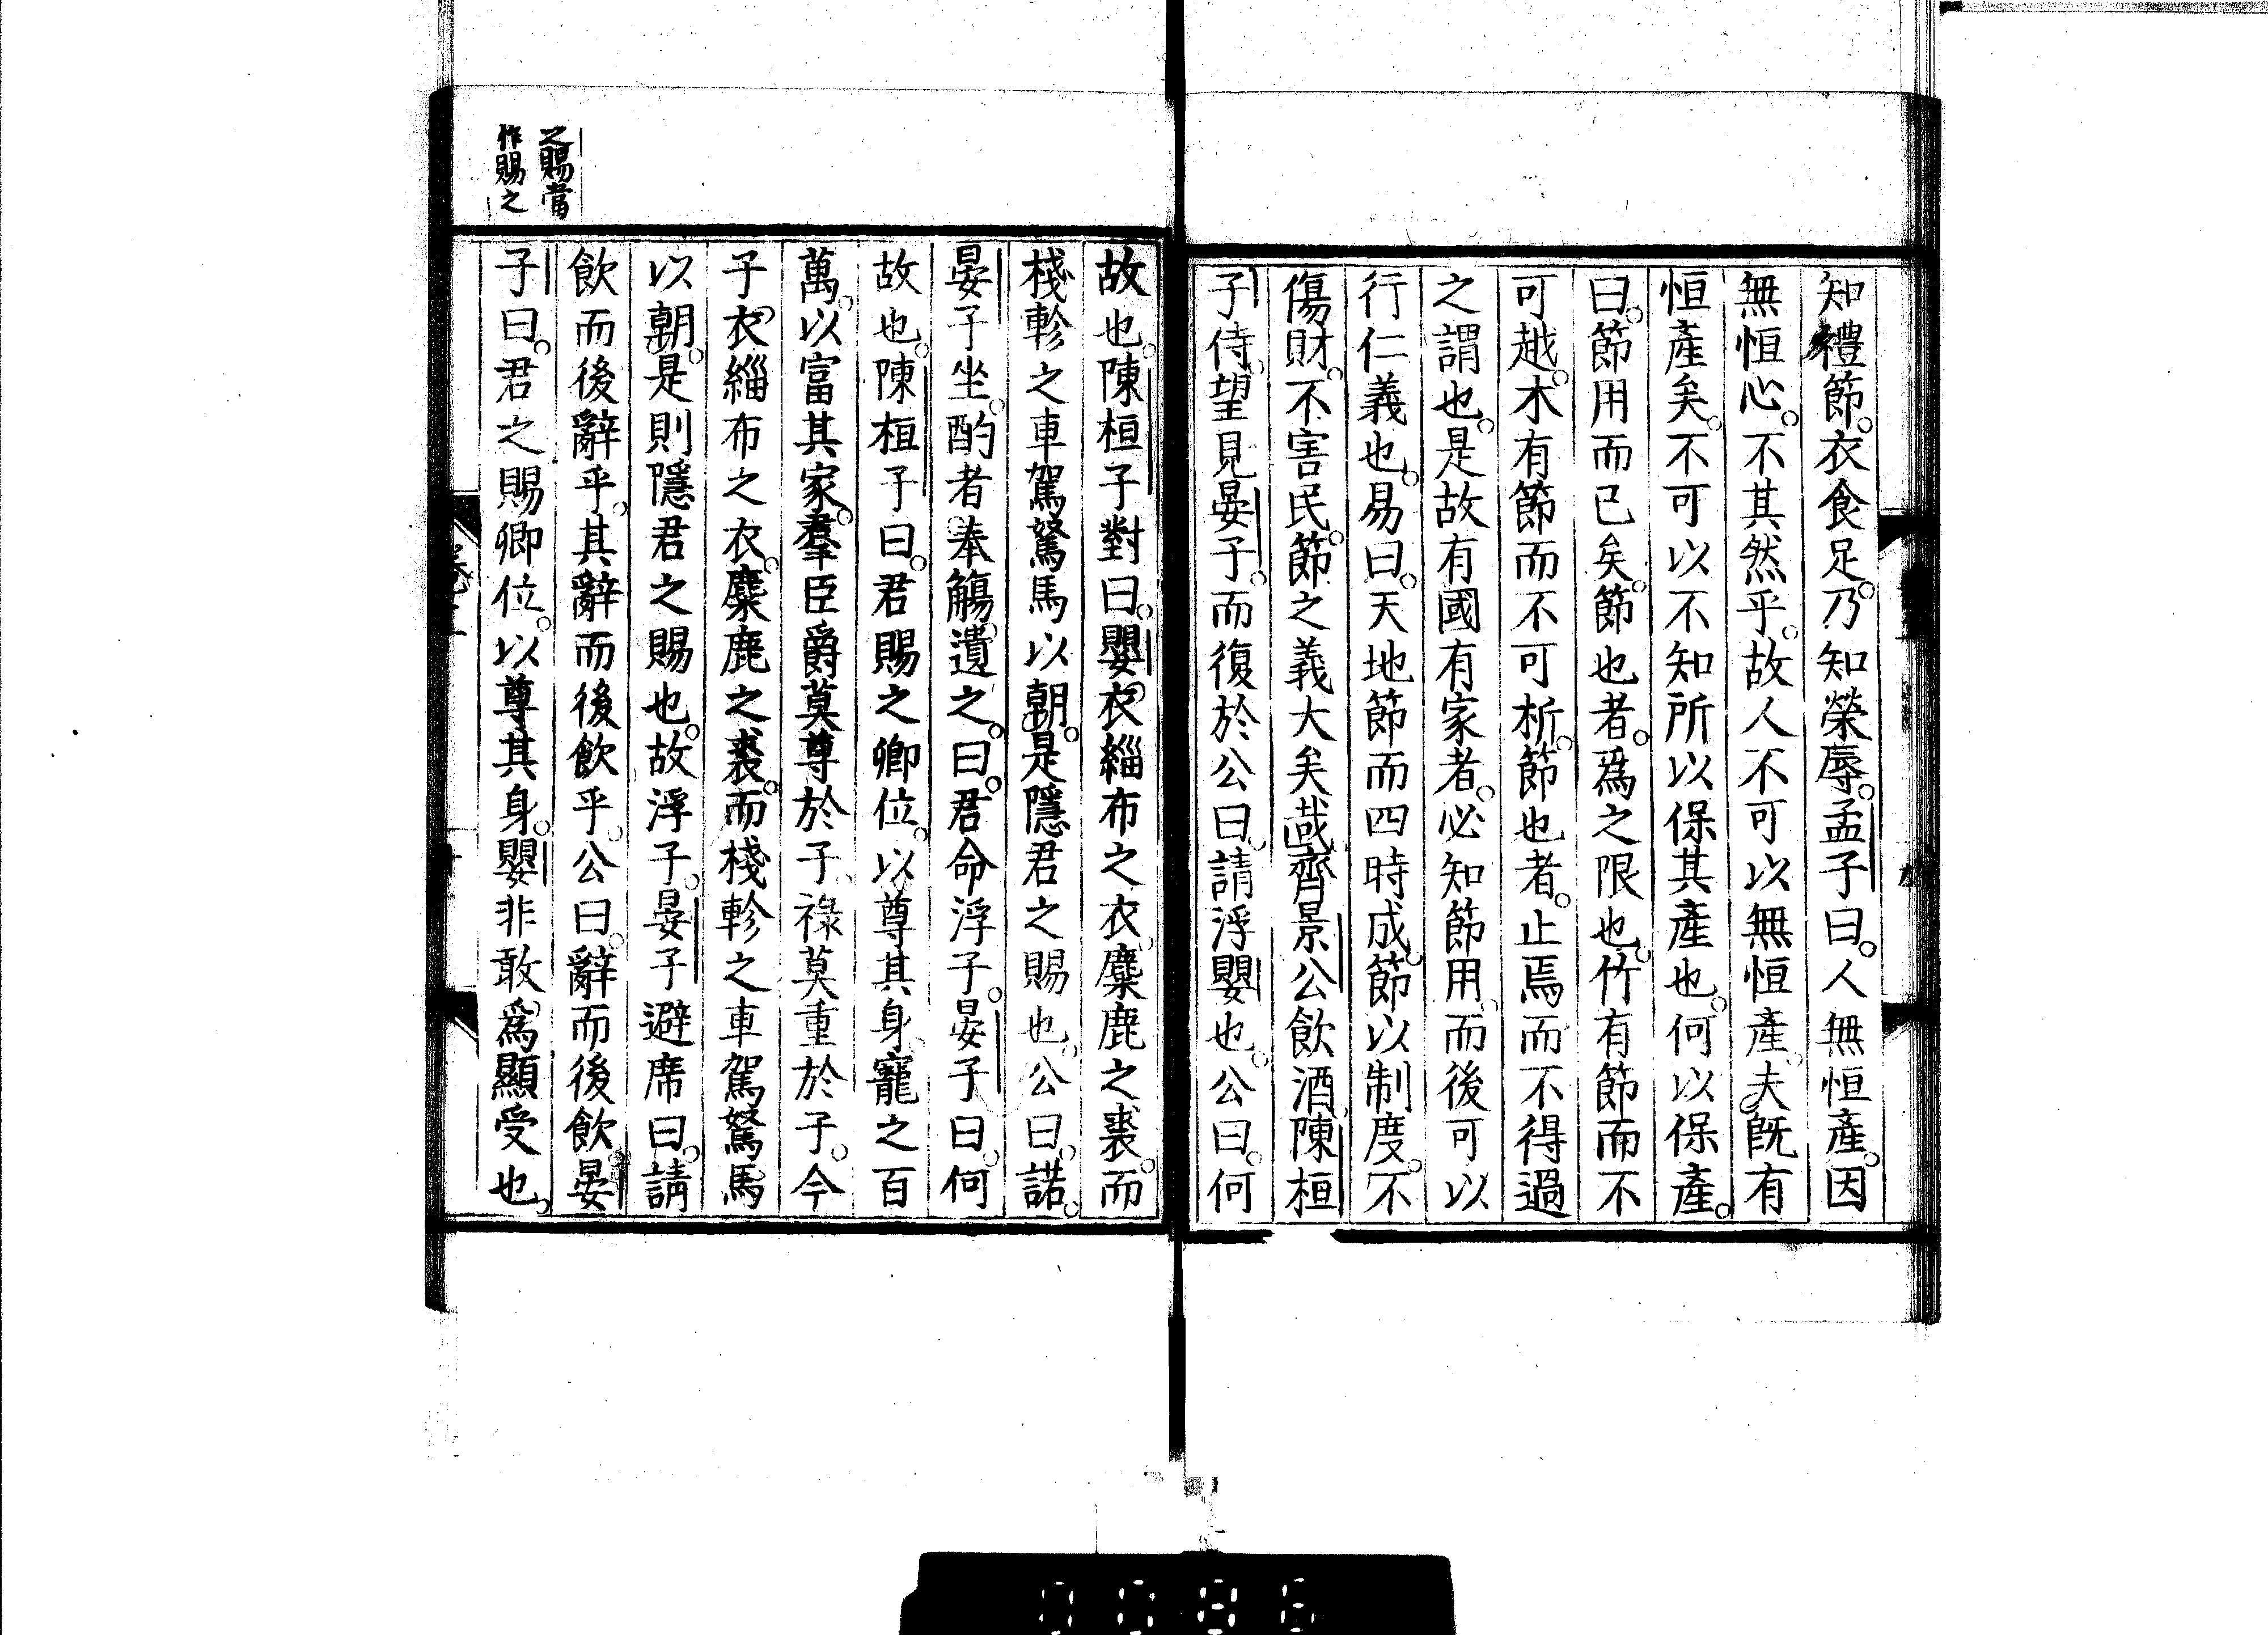 知禮節。衣食足。乃知榮辱。孟子曰。人無恒產。因
無恒心。不其然乎。故人不可以無恒產。夫既有
恒產矣。不可以不知所以保其產也。何以保產。
曰。節用而已矣。節也者。爲之限也。竹有節而不
可越。木有節而不可析。節也者。止焉而不得過
之謂也。是故有國有家者。必知節用。而後可以
行仁義也。易曰。天地節而四時成。節以制度。不
傷財。不害民。節之義大矣哉。齊景公飲酒。陳桓
子侍。望見晏子。而復於公曰。請浮嬰也。公曰。何
故也。陳桓子對曰。嬰衣緇布之衣。麋鹿之裘。而
棧軫之車駕駑馬以朝。是隱君之賜也。公曰。諾。
晏子坐。酌者奉觴遺之。曰。君命浮子。晏子曰。何
故也。陳桓子曰。君賜之卿位。以尊其身。寵之百
萬。以富其家。羣臣爵莫尊於子。祿莫重於子。今
子衣緇布之衣。麋鹿之裘。而棧軫之車駕駑馬
以朝。是則隱君之賜也。故浮子。晏子避席曰。請
飲而後辭乎。其辭而後飲乎。公曰。辭而後飲。晏
子曰。君之賜卿位。以尊其身。嬰非敢爲顯受也。
之賜當
作賜之